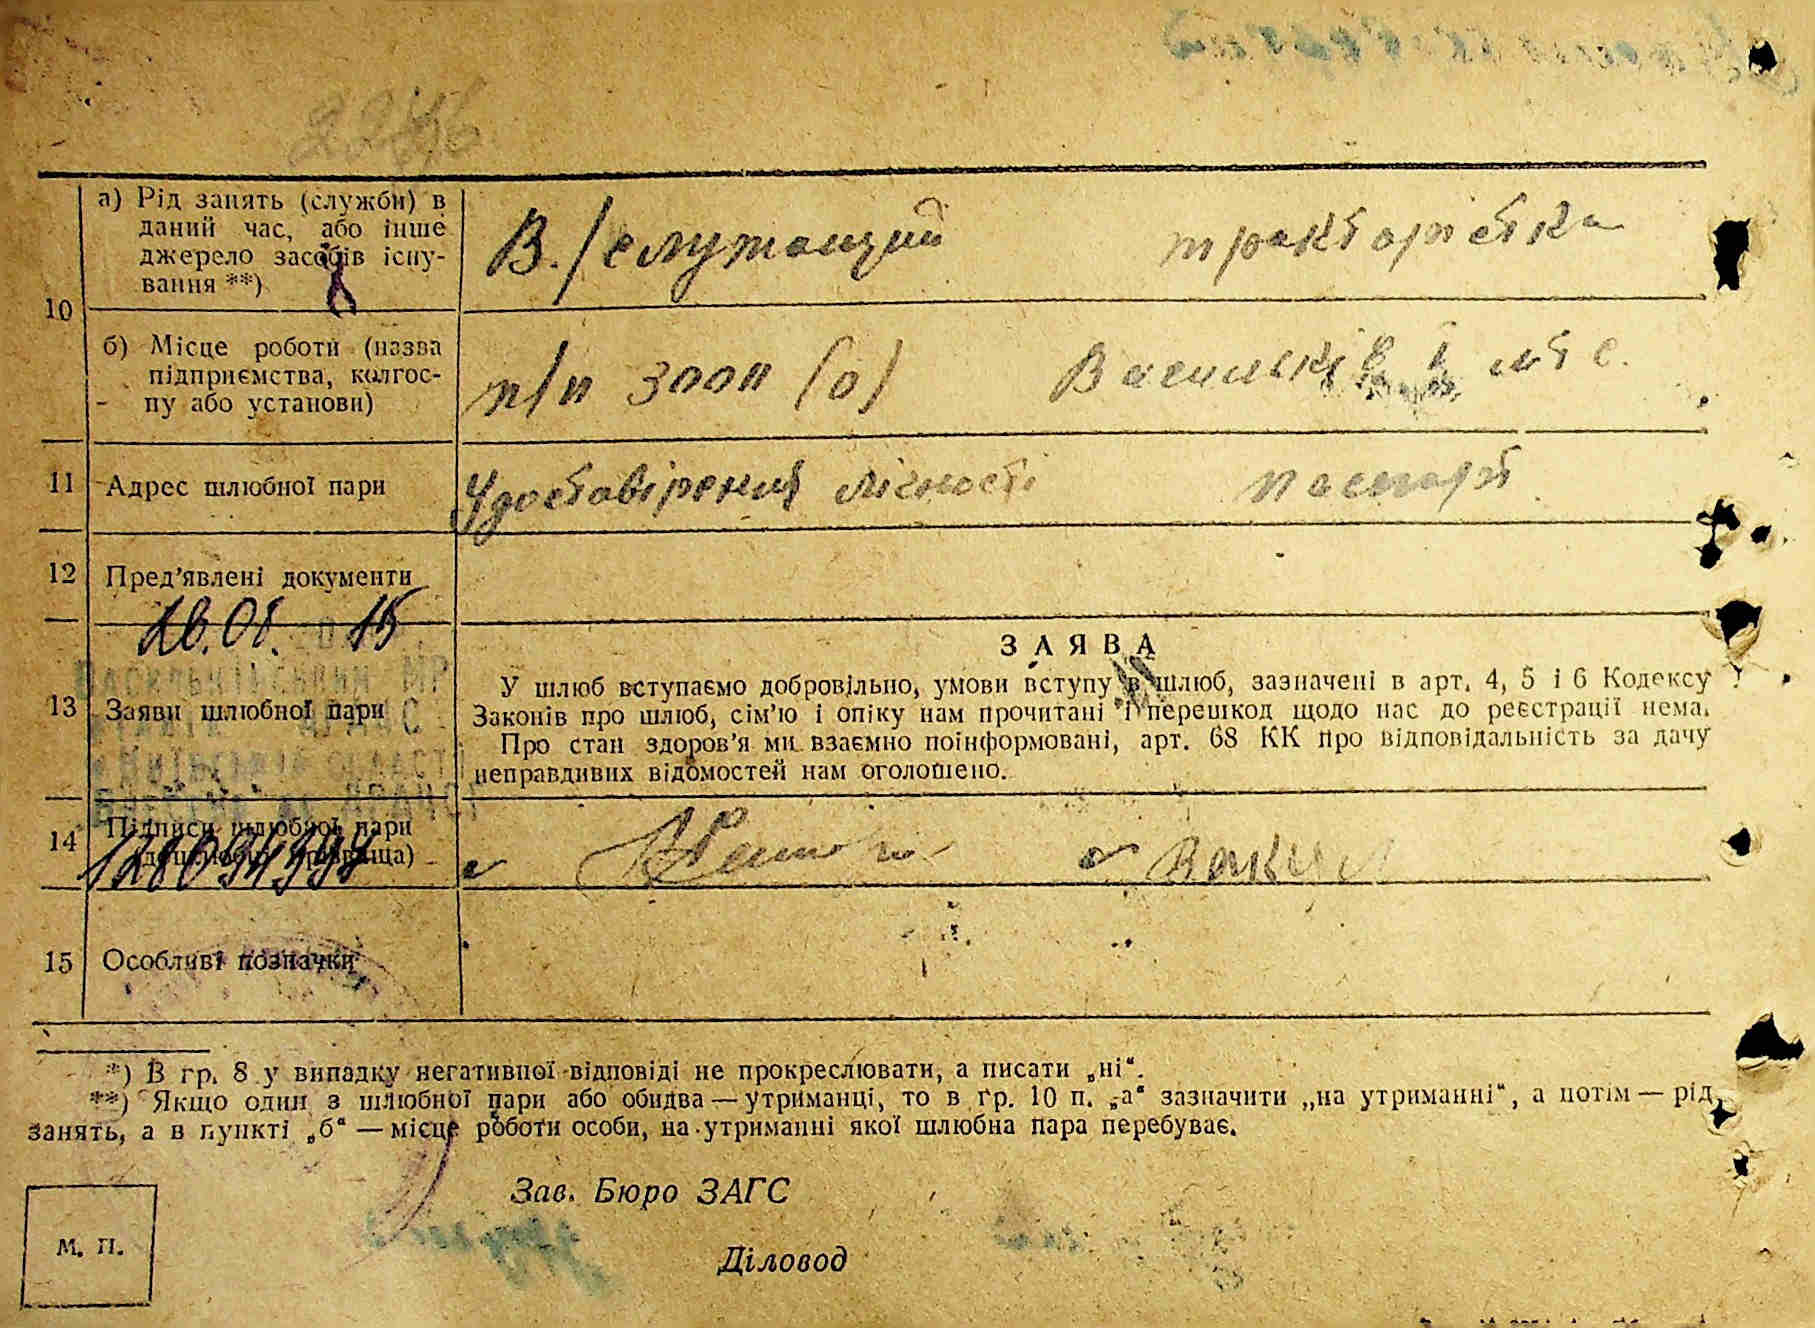 10
а) Рід занять (служби) в
даний час, або інше
джерело засобів існу-
вання **)
В./служащий
трактористка
б) Місце роботи (назва
підприємства, колгос-
пу або установи)
п/п 3000 (о)
Васильків
11
Адрес шлюбної пари
Удостовірення лічності
паспорт
12
Пред’явлені документи
13
Заяви шлюбної пари
ЗАЯВА
У шлюб вступаємо добровільно, умови вступу в шлюб, зазначені в арт. 4, 5 і 6 Кодексу
Законів про шлюб, сім’ю і опіку нам прочитані і перешкод щодо нас до реєстрації нема.
Про стан здоров’я ми взаємно поінформовані, арт. 68 КК про відповідальність за дачу
неправдивих відомостей нам оголошено.
14
Підписи шлюбної пари
15
Особливі позначки
*) В гр. 8 у випадку негативної відповіді не прокреслювати, а писати „ні“.
**) Якщо один з шлюбної пари або обидва — утриманці, то в гр. 10 п. „а“ зазначити „на утриманні“, а потім — рід
занять, а в пункті „б“ — місце роботи особи, на утриманні якої шлюбна пара перебуває.
Зав. Бюро ЗАГС
М. П.
Діловод